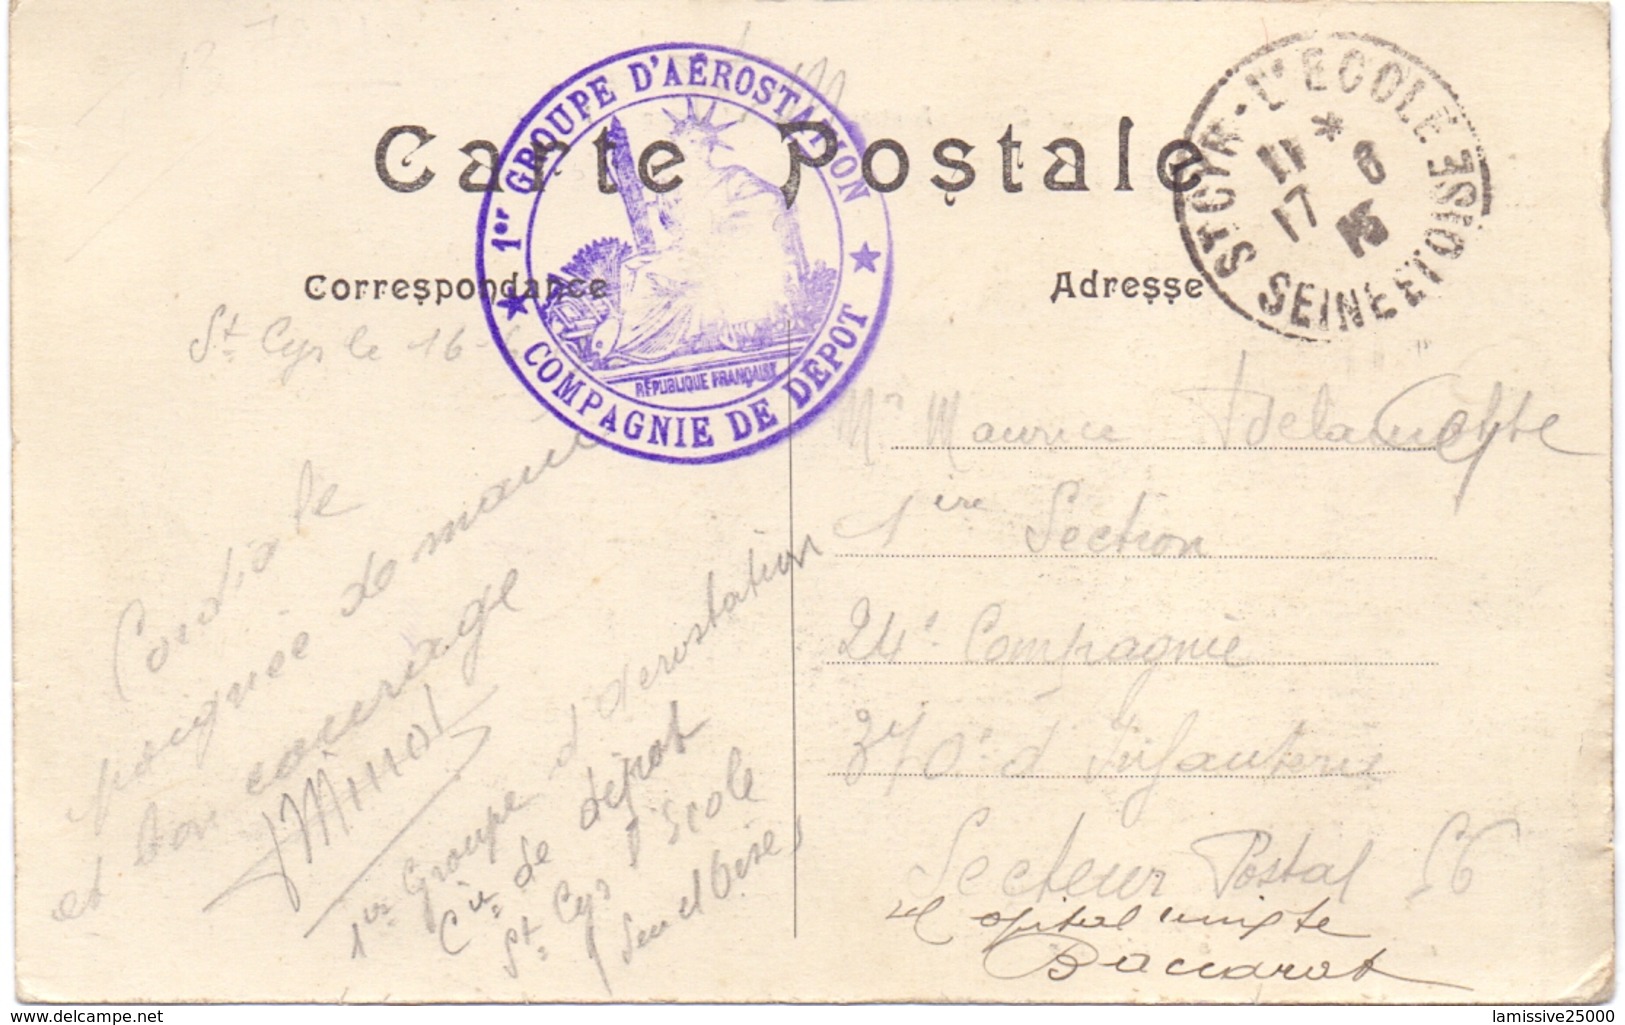 Carte Postale
Correspondance
Adresse
1er GROUPE D'AÉROSTATION
COMPAGNIE DE DÉPOT
RÉPUBLIQUE FRANÇAISE
ST CYR-L'ECOLE
11 * 6
17 15
SEINE ET OISE
St Cyr le 16-
Cordiale
poignée de main
et bon courage
1er Groupe d'Aerostation
Cie de dépot
St Cyr l'Ecole
Seine et Oise
Mr Maurice Delamotte
1ère Section
24e Compagnie
370e d'Infanterie
Secteur Postal 56
Hopital mixte
Baccarat
www.delcampe.net
lamissive25000